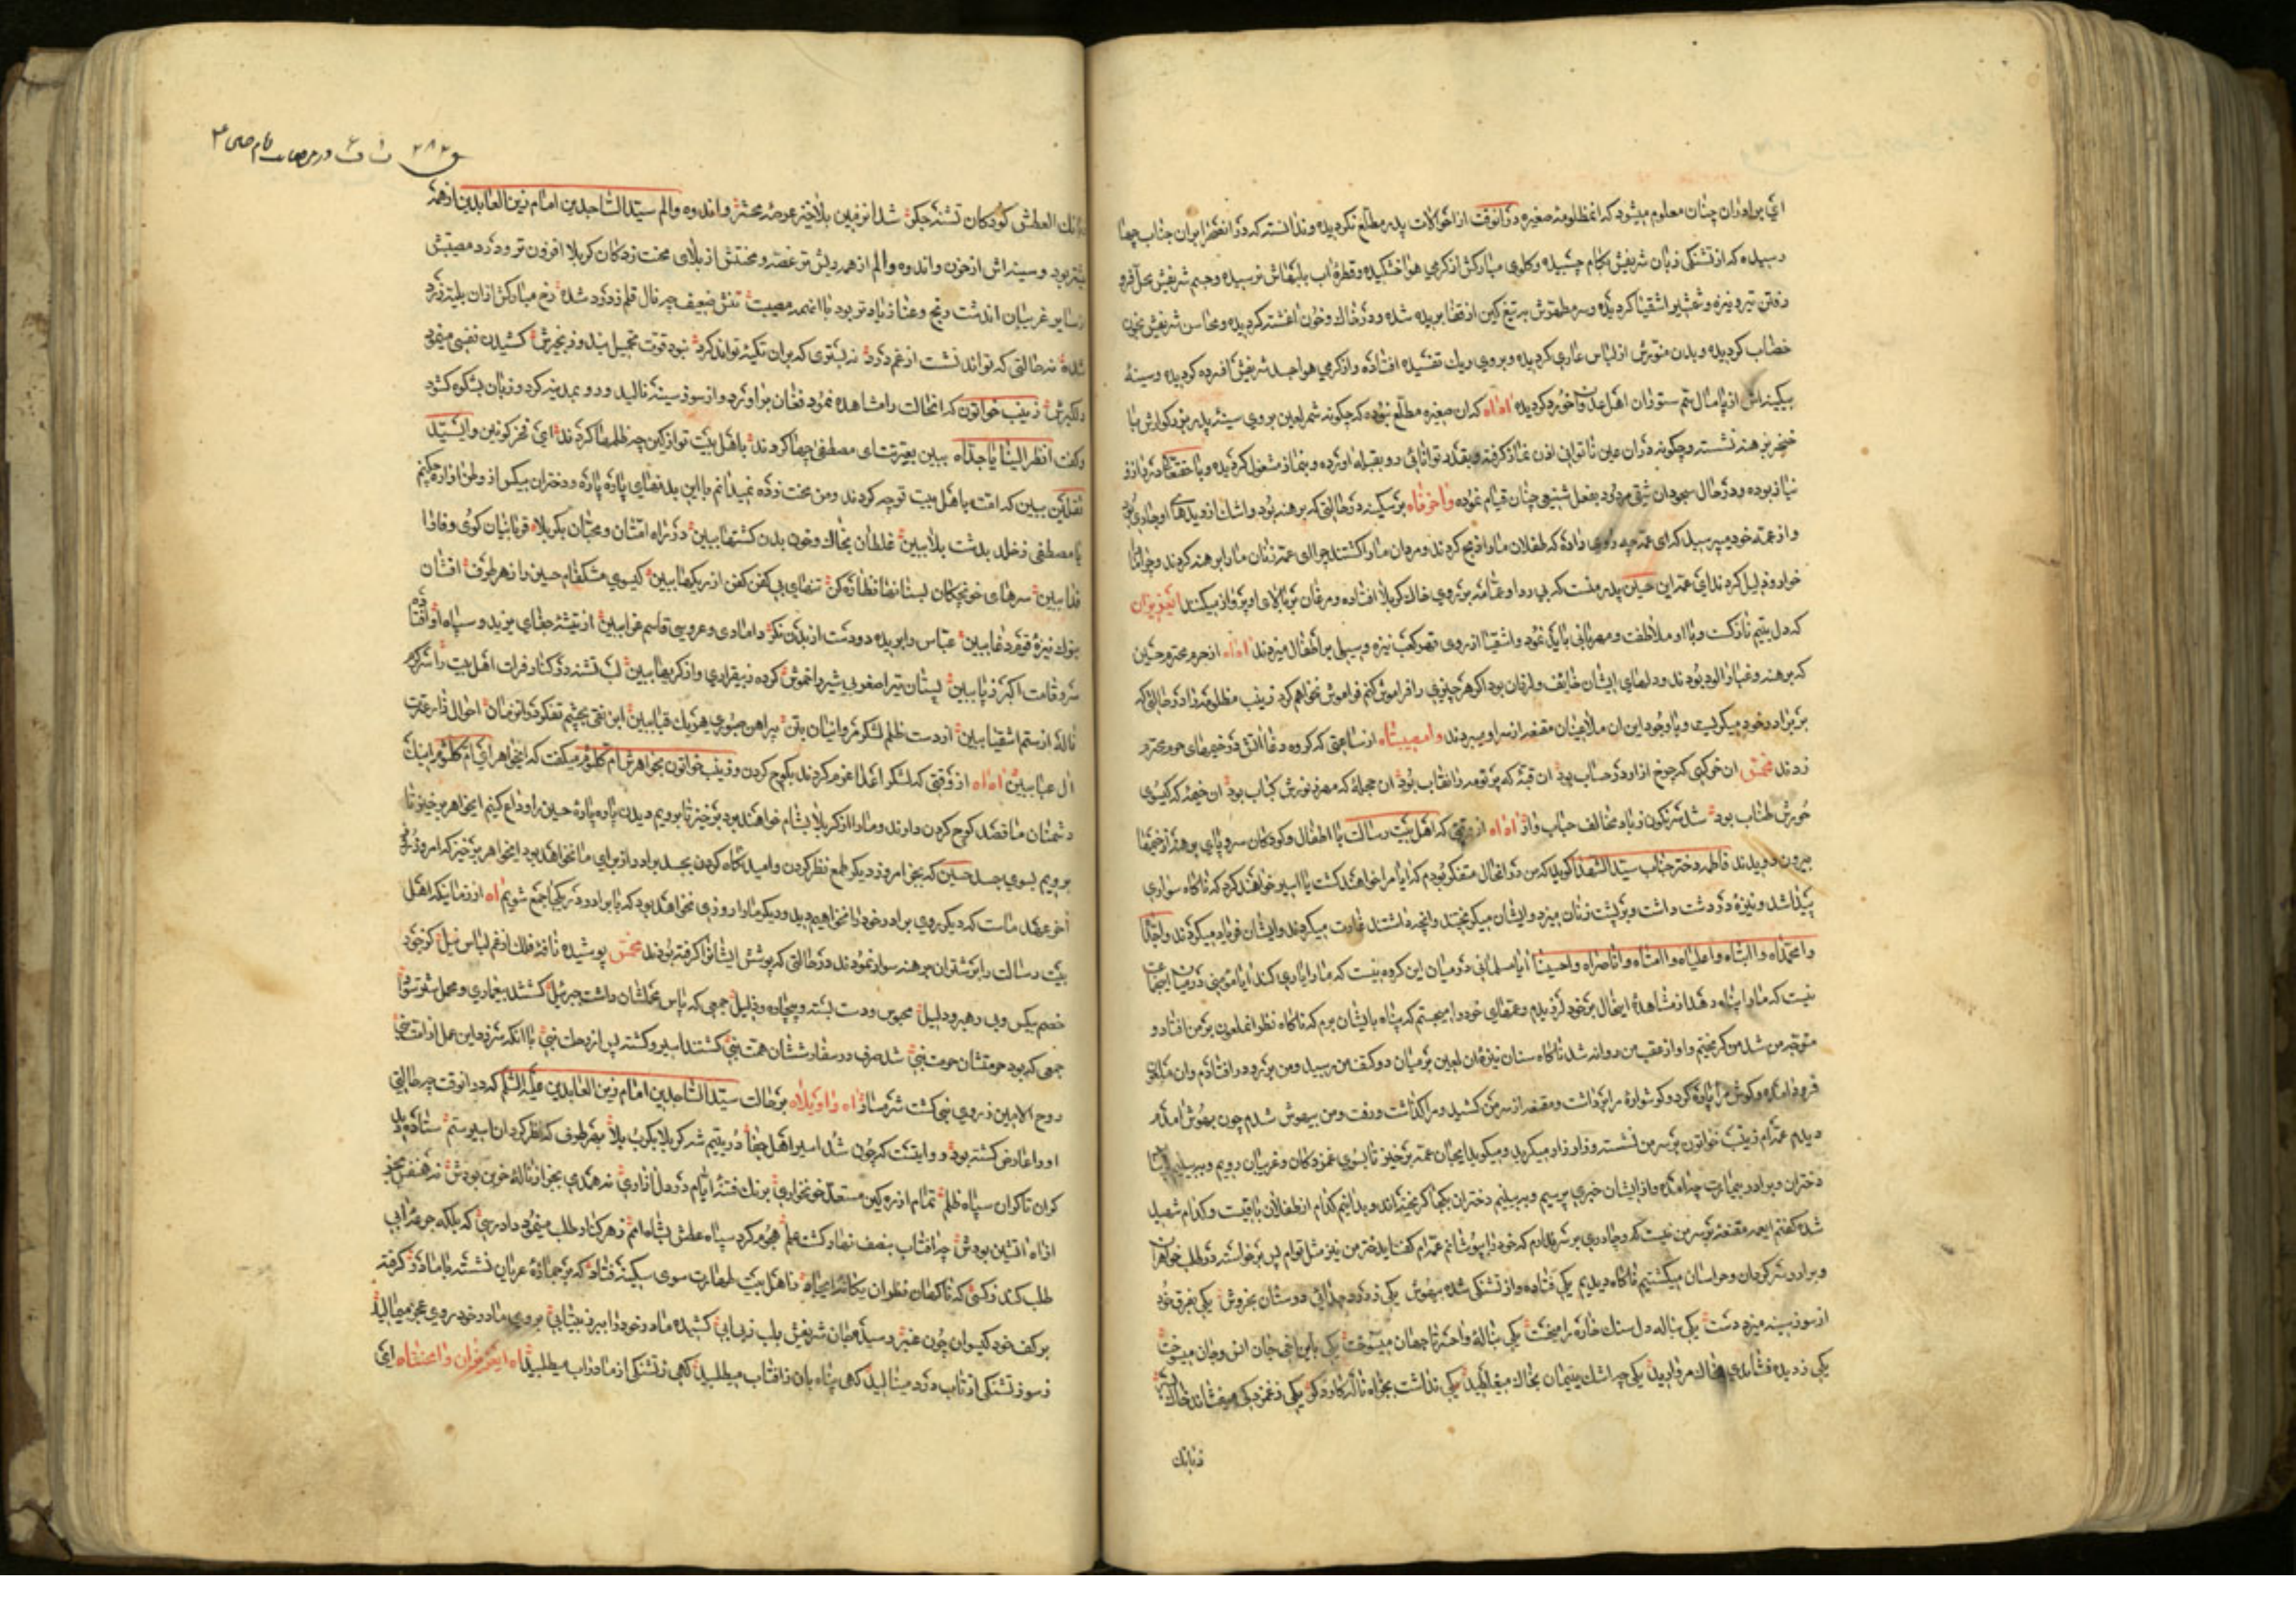 ای برادران چنان معلوم میشود که انمظلومهٔ صغیره درانوقت از احوالات پدر مطلع نکردیده وندانسته که در انصحرا بران جناب چها
رسیده که از تشنکی زبان شریفش بکام چسبیده وکلوی مبارکش از کرمی هوا خشکیده وقطرهٔ اب بلبهاش نرسیده وجسم شریفش محل فرو
رفتن تیر ونیزه وشمشیر اشقیا کردیده وسر مطهرش به تیغ کین از قفا بریده شده ودر خاک وخون اغشته کردیده ومحاسن شریفش بخون
خضاب کردیده وبدن منورش از لباس عاری کردیده وبروی ریک تفتیده افتاده واز کرمی هوا جسد شریفش افسرده کردیده وسینهٔ
بیکینه‌اش از پامال سم ستوران اهل عدوان خورد کردیده اه اه که ان صغیره مطلع نبوده که چکونه شمر لعین بروی سینهٔ پدر بزرکوارش با
خنجر برهنه نشسته وچکونه دران عین ناتوانی اذن نماز کرفته وبقدر توانائی رو بقبله اورده وبنماز مشغول کردیده
نیاز بوده ودر حال سجود ان شقی مردود بفعل شنیع چنان قیام نموده واحرقاه بر سکینه در حالتی که سر برهنه بود واشک از دیدهای او جاری بود
واز عمهٔ خود میپرسید که ای عمه چه روی داده که طفلان ما را ذبح کردند ومردان ما را کشتند چرا ای عمه زنان ما را برهنه کردند وجوانان
خوار وذلیل کردند ای عمه این حسین پدر منست که بی ردا وعمامه بر روی خاک کربلا افتاده ومرغان بر بالای او پرواز میکنند ایعزیزان
که دل یتیم نازکست وبا او ملاطفت ومهربانی باید نمود واشقیا از روی قهر کعب نیزه وسیلی بر اطفال میزدند اه اه از حرم محترم حسین
که برهنه وغبار الود بودند ودلهای ایشان خایف ولرزان بود اکر هر چیزیرا فراموش کنم فراموش نخواهم کرد زینب مظلومه را در حالتی که
بر برادر خود میکریست وبا وجود این ان ملاعینان مقنعه از سر او میبردند وامصیبتاه از ساعتی که کروه دغا اتش در خیمهای حرم محترم
زدند مخمس ان خرکهی که چرخ ازاو در حساب بود ان قبهٔ که پرتو مه را نقاب بود ان حجلهٔ که مهر ز نورش کباب بود ان خیمهٔ که کیسوی
حورش طناب بود شد سرنکون ز باد مخالف حباب وار اه اه از وقتی که اهل بیت رسالت با اطفال وکودکان سر وپای برهنه از خیمها
بیرون دویدند فاطمه دختر جناب سید الشهدا کوید که من در انحال متفکر بودم که ایا مرا خواهند کشت یا اسیر خواهند کرد که ناکاه سواری
پیدا شد ونیزهٔ در دست داشت وبر پشت زنان میزد وایشان میکریختند وانچه داشتند غارت میکردند وایشان فریاد میکردند واجداه
وامحمداه واابتاه واعلیاه وااماه واناصراه واحسینا ایا مسلمانی در میان این کروه نیست که ما را یاری کند ایا مومنی در میان اینجماعت
نیست که ما را پناه دهد از مشاهدهٔ اینحال بر خود لرزیدم وعمهای خود را میجستم که پناه بایشان برم که ناکاه نظر انملعون بر من افتاد و
متوجه من شد من کریختم واو از عقب من روانه شد ناکاه سنان نیزهٔ ان لعین بر میان دو کتف من رسید ومن برو در افتادم وان ملعون
فرود امده وکوش مرا پاره کرد وکوشوارهٔ مرا برداشت ومقنعه از سر من کشید ومرا کذاشت ورفت ومن بیهوش شدم چون بهوش امدم
دیدم عمه‌ام زینب خواتون بر سر من نشسته وزار زار میکرید ومیکوید ایجان عمه برخیز تا بسوی غمزدکان وغریبان رویم وببینیم
دختران وبرادر بیمارت چه امده واز ایشان خبری پرسیم وببینیم دختران بکجا کریخته‌اند وبدانیم کدام از طفلان باقیست وکدام شهید
شده کفتم ایعمه مقنعه بر سر من نیست چادری بر سرم نداری که خود را بپوشانم عمه‌ام کفت ایدختر من نیز مثل توام پس برخواسته در طلب خواهران
وبرادر سر کردان وهراسان میکشتیم ناکاه دیدیم یکی فتاده واز تشنکی شده بیهوش یکی ز درد جدائی دوستان بخروش یکی بفرق خود
از سوز سینه میزد دست یکی بناله دل سنک خاره را میخست یکی بنالهٔ واحسرتا جهان میسوخت یکی باین اخی جان انس وجان میسوخت
یکی ز دیده فشاندی بخاک مروارید یکی چو اشک یتیمان بخاک میغلطید یکی نداشت بجز اه ناله کار دکر یکی ز غمزدکی میفشاند خاک بسر
زبانک
ق ۲۸۲
زبانک العطش کودکان تشنه جکر شد انزمین بلاخیز عرصهٔ محشر واندوه والم سید الساجدین امام زین العابدین از همه
بیشتر بود وسینه‌اش از حزن واندوه والم از همه ریش‌تر غصه ومحنتش از بلای محنت زدکان کربلا افزون‌تر ودرد مصیبتش
از سایر غریبان اندشت ورنج وعنا زیادتر بود با اینهمه مصیبت تنش ضعیف چه نال قلم ز درد شده رخ مبارکش ازان بلیه زرد
شده نه حالتی که تواند نشست از غم درد نه بستری که بران تکیه تواند کرد نبود قوت تحمیل بند وزنجیرش کشیدن نفسی مینمود
دلکیرش زینب خواتون که انحالت را مشاهده نمود فغان بر اورد واز سوز سینه نالید ورو بمدینه کرد وزبان بشکوه کشود
وکفت انظر الینا یا جداه ببین بعترتت ای مصطفی چها کردند باهل بیت تو از کین چه ظلمها کردند ای فخر کونین وای سید
ثقلین ببین که امت باهل بیت تو چه کردند ومن محنت زده نمیدانم با این بدنهای پاره پاره ودختران بیکس از وطن اواره چکنم
یا مصطفی ز خلد بدشت بلا ببین غلطان بخاک وخون بدن کشتها ببین در راه امتان ومحبان بکربلا قربانیان کوی وفا را
فدا ببین سرهای خونچکان بسنانها نظاره کن تنهای بی کفن کفن از ریکها ببین کیسوی مشکفام حسین را ز هر طرف افشان
بنوک نیزهٔ قوم دغا ببین عباس را بریده دو دست از بدن نکر دامادی وعروسی قاسم عزا ببین از تیشهٔ جفای یزید وسپاه او افتاده
سرو قامت اکبر ز پا ببین پستان تیر اصغر بی‌شیر را خموش کرده ز بیقراری واز کریها ببین لب تشنه در کنار فرات اهل بیت را سرکرم
ناله از ستم اشقیا ببین از دست ظلم لشکر مروانیان بتن پیراهن صبوری هر یک قبا ببین ابن تقی بچشم تفکر در انزمان احوال زار عترت
ال عبا ببین اه اه از وقتی که لشکر اعدا عزم کردند بکوچ کردن وزینب خواتون بخواهرش ام کلثوم میکفت که ایخواهر ای ام کلثوم اینک
دشمنان ما قصد کوچ کردن دارند وما را از کربلا بشام خواهند برد برخیز تا برویم وبدن پاره پارهٔ حسین را وداع کنیم ایخواهر برخیز تا
برویم بسوی جسد حسین که بجز امروز دیکر طمع نظر کردن وامید نکاه کردن بجسد برادر از برای ما نخواهد بود ایخواهر برخیز که امروز روز
اخر عهد ماست که دیکر روی برادر خود را نخواهیم دید ودیکر ما را روزی نخواهد بود که با برادر در یکجا جمع شویم اه از زمانیکه اهل
بیت رسالت را بر شتران برهنه سوار نمودند در حالتی که پوشش ایشانرا کرفته بودند مخمس پوشیده ناقهٔ فلک از غم لباس نیل
خصم بیکس وبی رهبر ودلیل محبوس ودست بسته وبیچاره وذلیل جمعی که پاس محملشان داشت جبرئیل کشتند بیعماری ومحمل شتر سوار
جمعی که بود حرمتشان حرمت نبی شد صرف در سفارششان همت نبی کشتند اسیر وکشته پس از رحلت نبی با انکه سر زد این عمل از امت نبی
روح الامین ز روی نبی کشت شرمسار اه واویلاه بر حالت سید الساجدین امام زین العابدین علیه السلام که در انوقت چه حالتی
اورا عارض کشته بود وروایتست که چون شد اسیر اهل جفا در یتیم شه کربلا بکرب بلا بهر طرف که نظر کرد ان اسیر ستم ستاده دید
کران تا کران سپاه ظلم تمام از ره کین مستعد خونخواری برنک فتنهٔ ایام در دل ازاری نه همدمی بجز از نالهٔ حزین بودش نه همنفس بجز
از اه اتشین بودش چه افتاب بنصف نهار کشت علم هجوم کرد سپاه عطش بشاه امم ز هر کنار طلب مینمود دادرسی که بلکه جرعهٔ ابی
طلب کند ز کسی که ناکهان نظر ان یکانه ایجاد ز اهل بیت طهارت سوی سکینه فتاد که بر جمازهٔ عریان نشسته با مادر کرفته
بر کف خود کیسوان چون عنبر رسیده جان شریفش بلب ز بی ابی کشیده مادر خود را ببر ز بیتابی بروی مادر خود روی عجز میمالید
ز سوز تشنکی از تاب درد مینالید کهی پناه بان ز افتاب میطلبید کهی ز تشنکی از مادر اب میطلبید اه ایعزیزان وامحنتاه ای